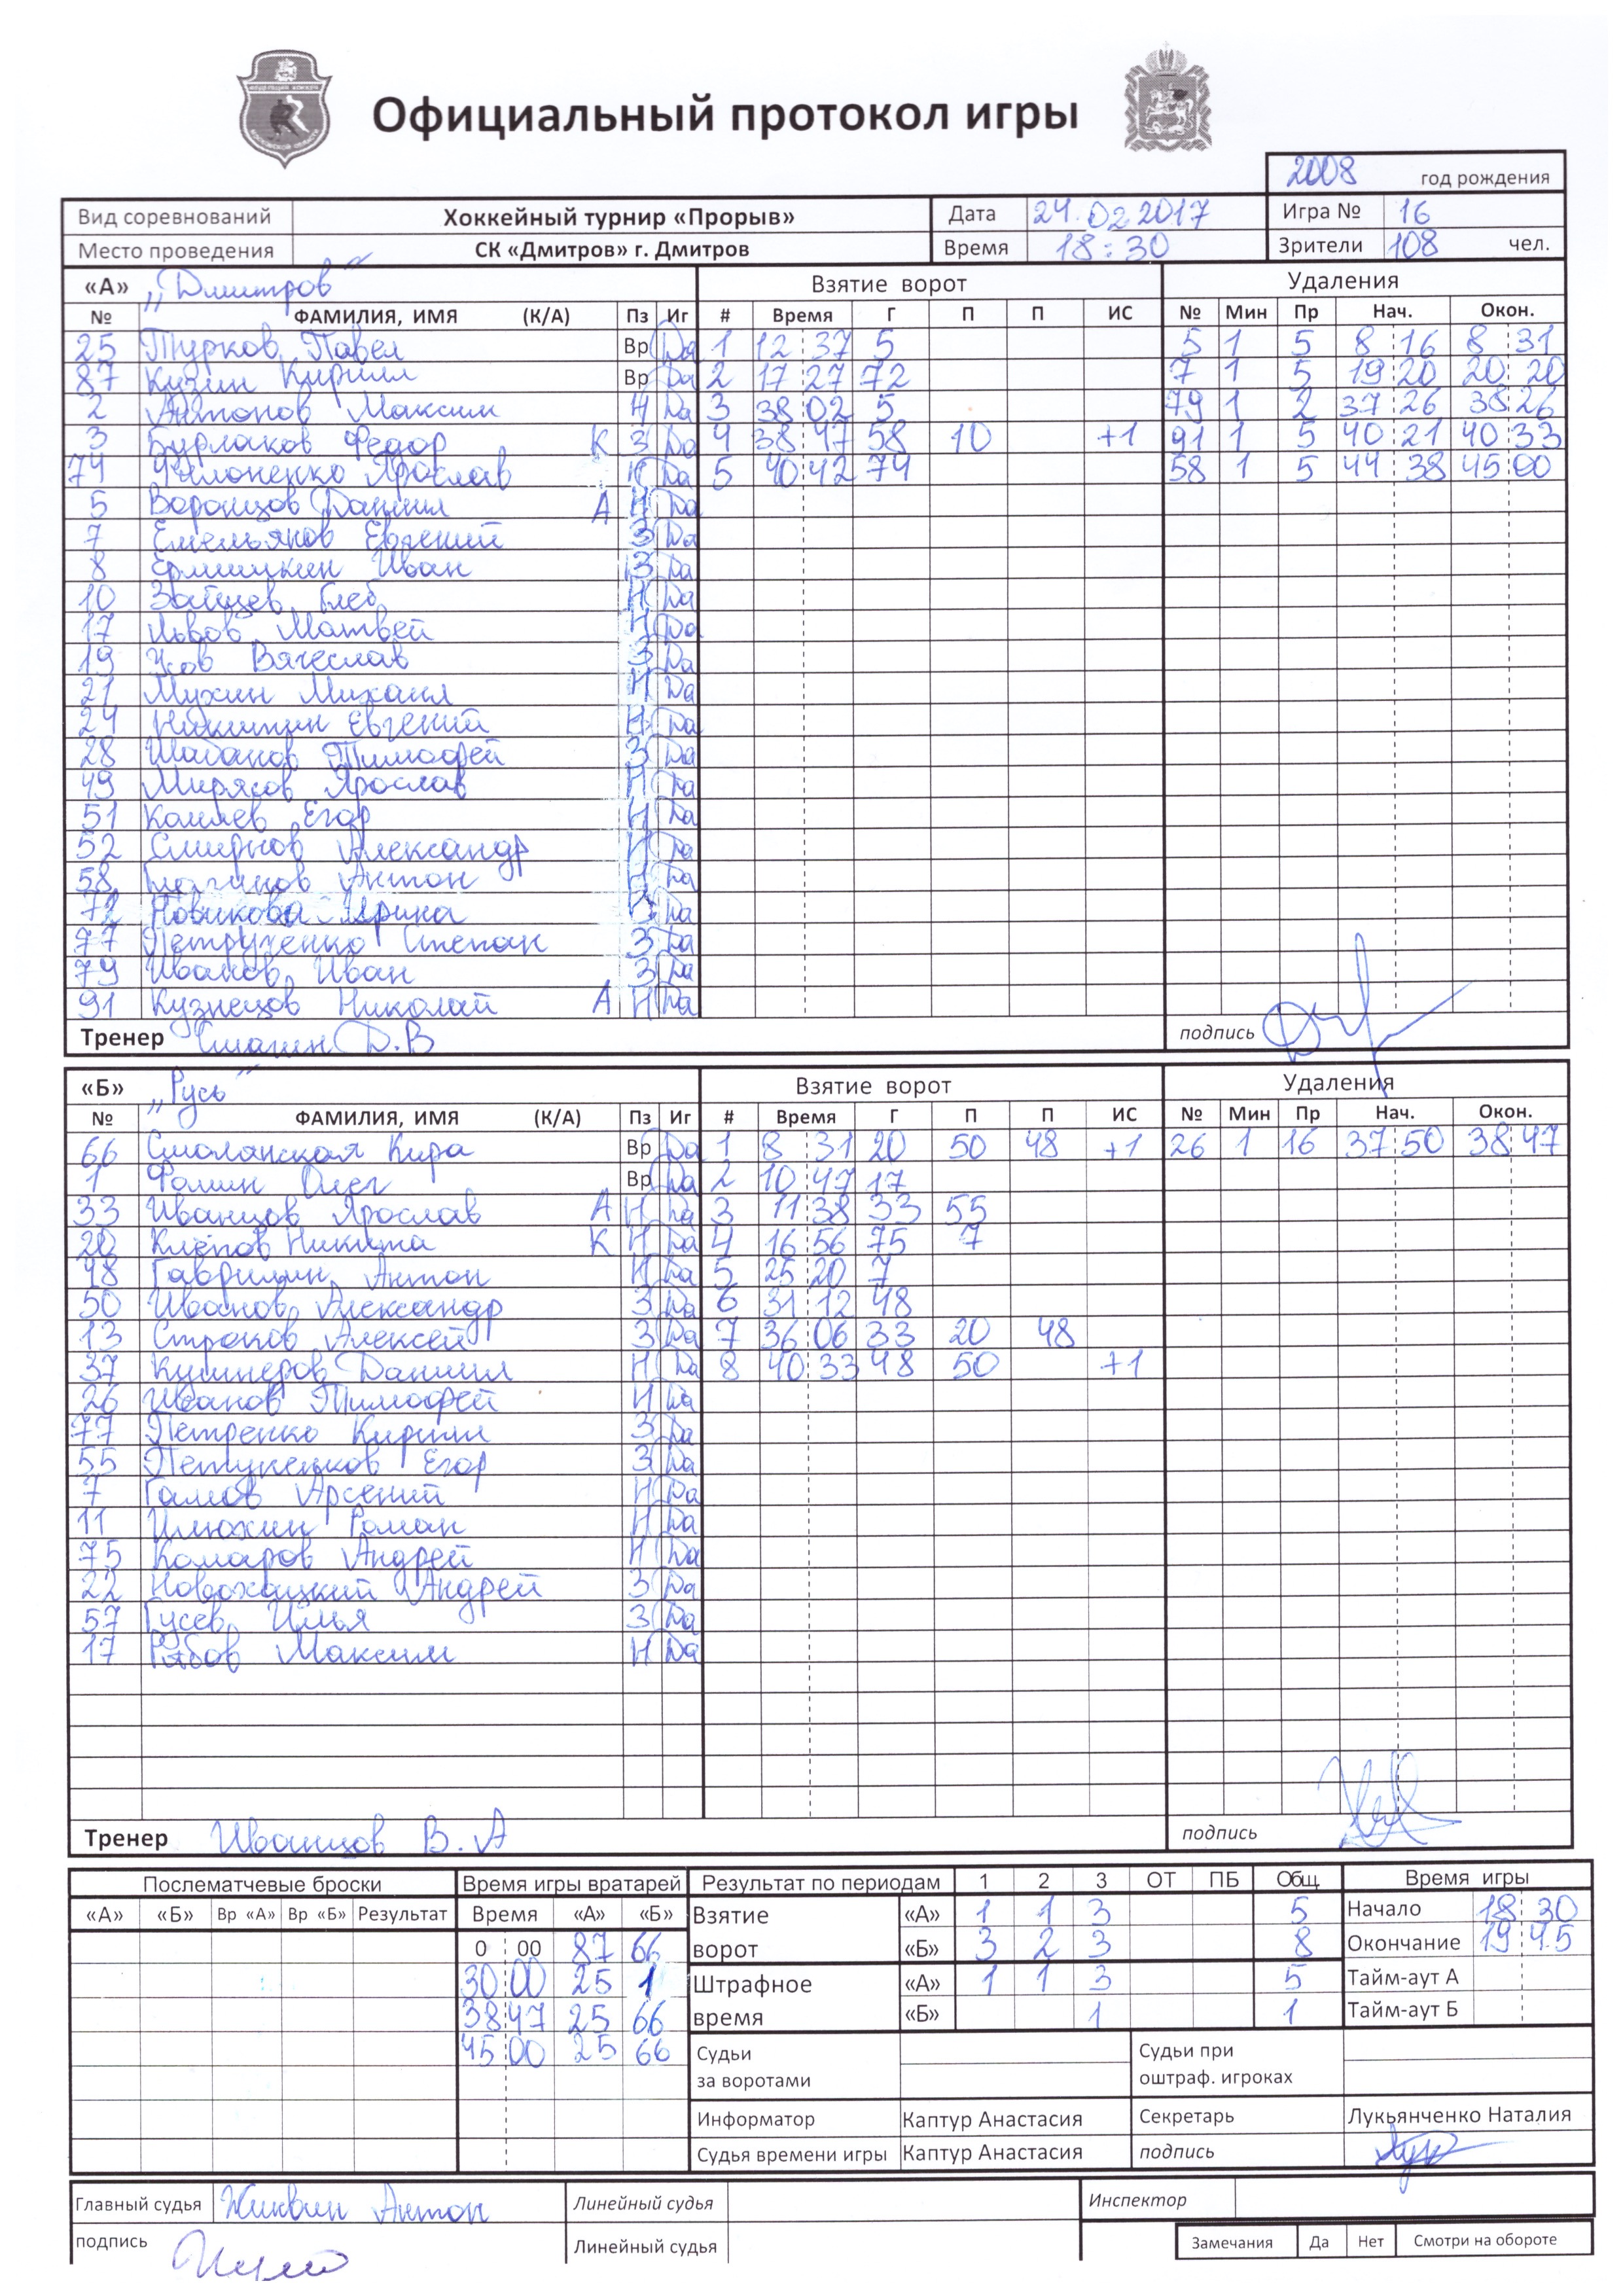 Официальный протокол игры
2008 год рождения
Вид соревнований Хоккейный турнир «Прорыв» Дата 24.02 2017 Игра № 16
Место проведения СК «Дмитров» г. Дмитров Время 18:30 Зрители 108 чел.
«А» „Дмитров“ Взятие ворот Удаления
№ ФАМИЛИЯ, ИМЯ (К/А) Пз Иг # Время Г П П ИС № Мин Пр Нач. Окон.
25 Турков Павел Вр Да 1 12 37 5 5 1 5 8 16 8 31
87 Кузин Кирилл Вр Да 2 17 27 72 7 1 5 19 20 20 20
2 Антонов Максим Н Да 3 38 02 5 79 1 2 37 26 38 26
3 Бурлаков Федор К З Да 4 38 47 58 10 +1 91 1 5 40 21 40 33
74 Филоненко Ярослав Н Да 5 40 42 74 58 1 5 44 38 45 00
5 Воронцов Даниил А Н Да
7 Емельянов Евгений З Да
8 Ермишкин Иван З Да
10 Зайцев Глеб Н Да
17 Львов Матвей Н Да
19 Усов Вячеслав З Да
21 Мухин Михаил Н Да
24 Никитин Евгений Н Да
28 Шабанов Тимофей З Да
49 Мирясов Ярослав Н Да
51 Комлев Егор Н Да
52 Смирнов Александр Н Да
58 Антон Н Да
72 Новикова Ирина Да
77 Петрученко Степан З Да
79 Иванов Иван З Да
91 Кузнецов Николай А Н Да
Тренер Д.В подпись
«Б» „Русь“ Взятие ворот Удаления
№ ФАМИЛИЯ, ИМЯ (К/А) Пз Иг # Время Г П П ИС № Мин Пр Нач. Окон.
66 Смолянская Кира Вр Да 1 8 31 20 50 48 +1 26 1 16 37 50 38 47
1 Фомин Олег Вр Да 2 10 47 17
33 Иванцов Ярослав А Н Да 3 11 38 33 55
20 Клёпов Никита К Н Да 4 16 56 75 7
48 Гаврилин Антон Н Да 5 25 20 7
50 Иванов Александр З Да 6 31 12 48
13 Строков Алексей З Да 7 36 06 33 20 48
37 Кушнеров Даниил Н Да 8 40 33 48 50 +1
26 Иванов Тимофей Н Да
77 Петренко Кирилл З Да
55 Петуненков Егор З Да
7 Гамов Арсений Н Да
11 Илюхин Роман Н Да
75 Комаров Андрей Н Да
22 Новохацкий Андрей З Да
57 Гусев Илья З Да
17 Рябов Максим Н Да
Тренер Иванцов В.А подпись
Послематчевые броски Время игры вратарей Результат по периодам 1 2 3 ОТ ПБ Общ. Время игры
«А» «Б» Вр «А» Вр «Б» Результат Время «А» «Б» Взятие ворот «А» 1 1 3 5 Начало 18 30
0 00 87 66 «Б» 3 2 3 8 Окончание 19 45
30 00 25 1 Штрафное время «А» 1 1 3 5 Тайм-аут А
38 47 25 66 «Б» 1 1 Тайм-аут Б
45 00 25 66 Судьи за воротами Судьи при оштраф. игроках
Информатор Каптур Анастасия Секретарь Лукьянченко Наталия
Судья времени игры Каптур Анастасия подпись
Главный судья Антон Линейный судья Инспектор
подпись Линейный судья Замечания Да Нет Смотри на обороте